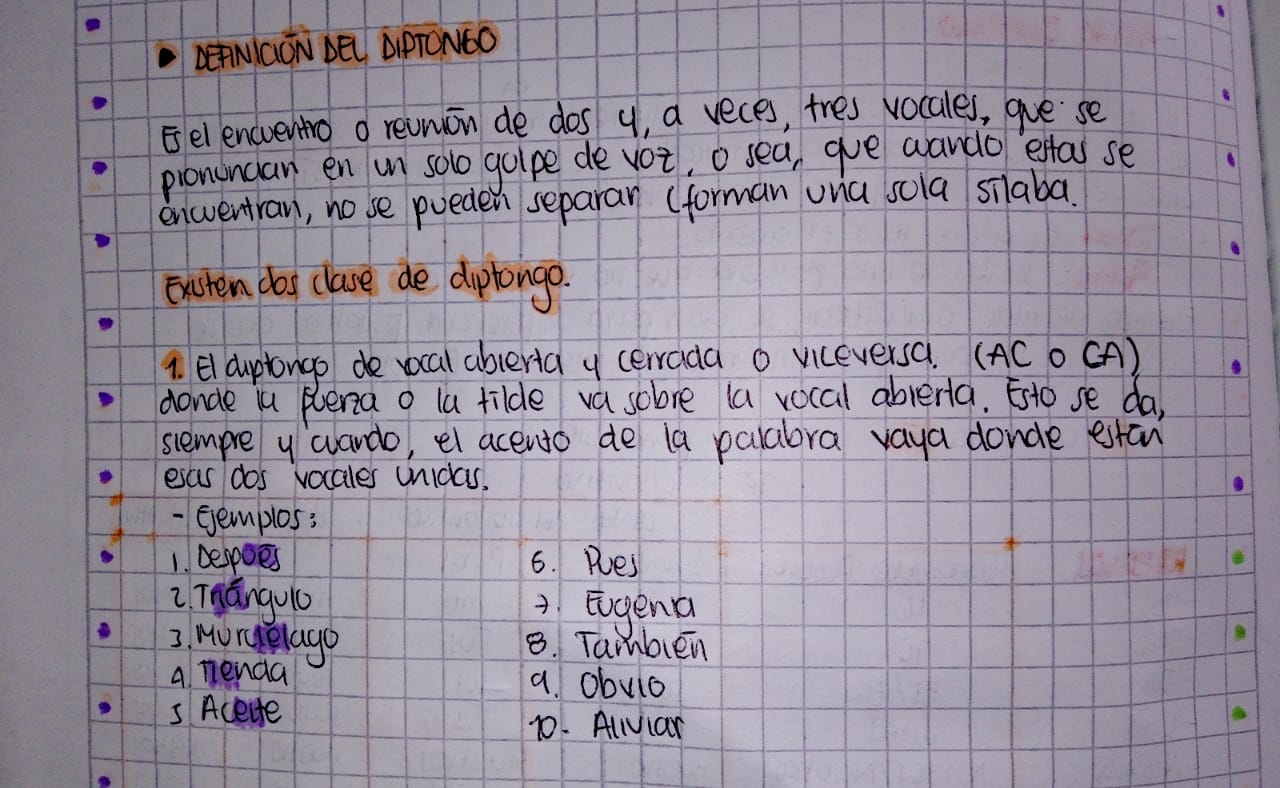 ▶ DEFINICIÓN DEL DIPTONGO
Es el encuentro o reunión de dos y, a veces, tres vocales, que se
pronuncian en un solo golpe de voz, o sea, que cuando estas se
encuentran, no se pueden separar (forman una sola sílaba.
Existen dos clase de diptongo.
1. El diptongo de vocal abierta y cerrada o viceversa. (AC o CA)
donde la fuerza o la tilde va sobre la vocal abierta. Esto se da,
siempre y cuando, el acento de la palabra vaya donde están
esas dos vocales unidas.
- Ejemplos:
1. Después
2. Triángulo
3. Murciélago
4. Tienda
5 Aceite
6. Pues
7. Eugenia
8. También
9. Obvio
10. Aliviar